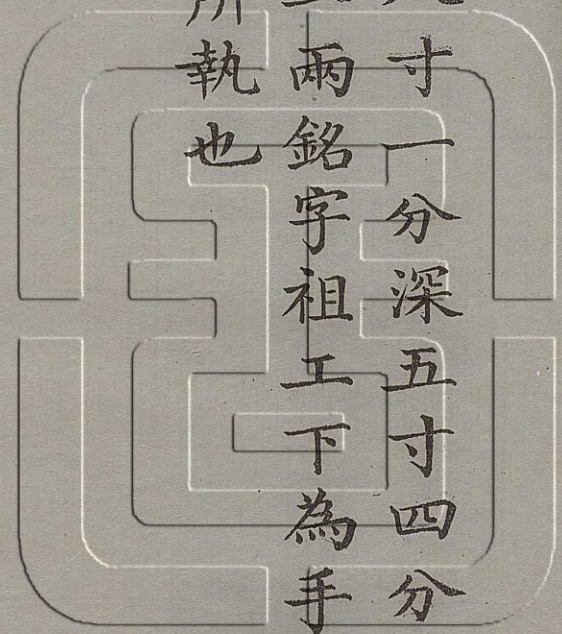 寸一分深五寸四分
兩銘字祖工下為手
所執也